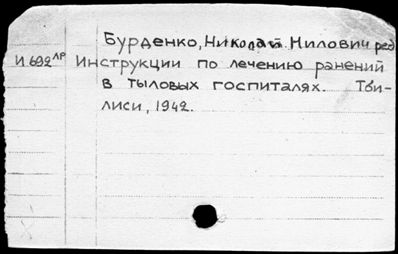 Бурденко, Николай Нилович ред
И 692 ЛР Инструкции по лечению ранений
в тыловых госпиталях. Тби-
лиси, 1942.